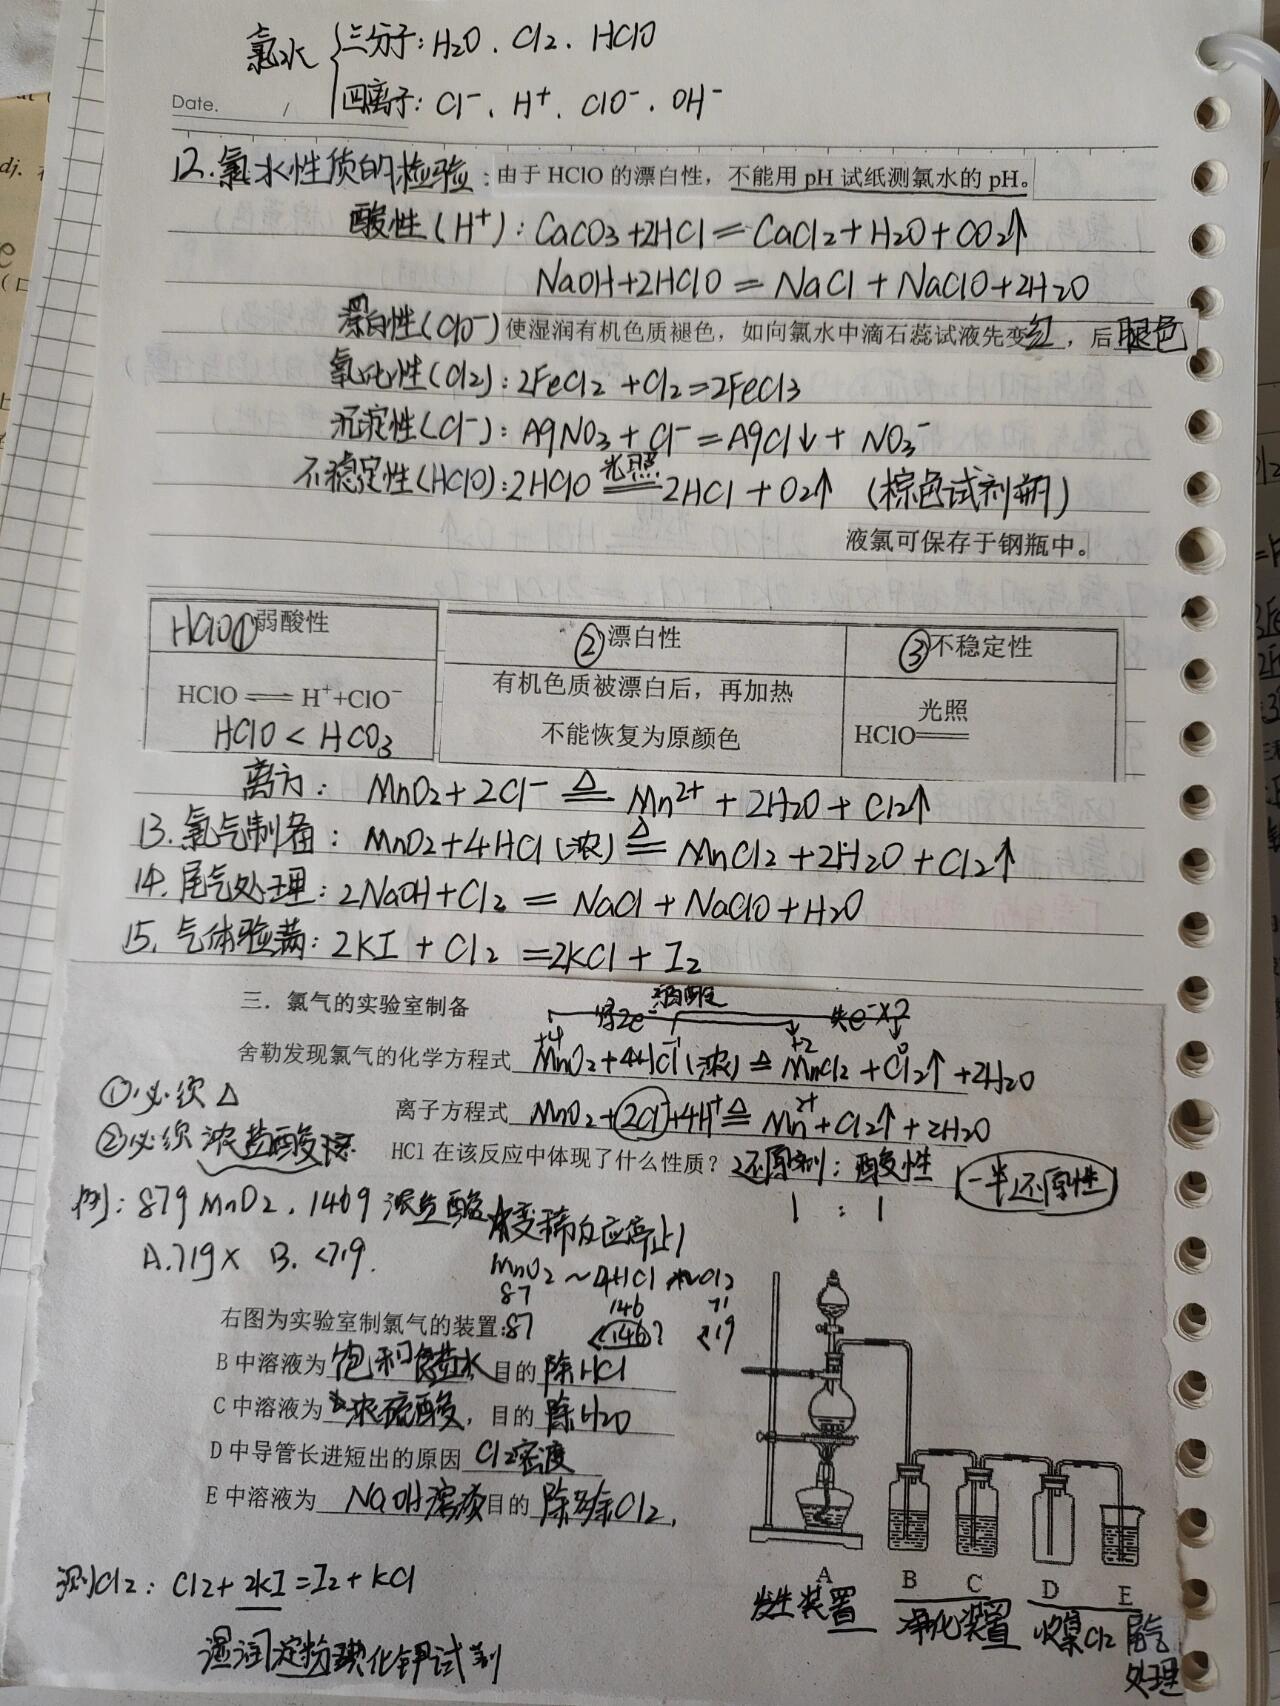 氯水 { 三分子：H₂O．Cl₂．HClO
四离子：Cl⁻．H⁺．ClO⁻．OH⁻
Date. /
12.氯水性质的检验：由于 HClO 的漂白性，不能用 pH 试纸测氯水的 pH。
酸性(H⁺)：CaCO₃+2HCl=CaCl₂+H₂O+CO₂↑
NaOH+2HClO=NaCl+NaClO+2H₂O
漂白性(ClO⁻)使湿润有机色质褪色，如向氯水中滴石蕊试液先变红，后腿色
氧化性(Cl₂)：2FeCl₂+Cl₂=2FeCl₃
沉淀性(Cl⁻)：AgNO₃+Cl⁻=AgCl↓+NO₃⁻
不稳定性(HClO)：2HClO 光照 2HCl+O₂↑ (棕色试剂瓶)
液氯可保存于钢瓶中。
HClO①弱酸性 ②漂白性 ③不稳定性
HClO⇌H⁺+ClO⁻ 有机色质被漂白后，再加热 光照
HClO<HCO₃ 不能恢复为原颜色 HClO══
离方：MnO₂+2Cl⁻ △ Mn²⁺+2H₂O+Cl₂↑
13.氯气制备：MnO₂+4HCl(浓) △ MnCl₂+2H₂O+Cl₂↑
14.尾气处理：2NaOH+Cl₂=NaCl+NaClO+H₂O
15.气体验满：2KI+Cl₂=2KCl+I₂
三．氯气的实验室制备
得2e⁻ 失e⁻×2
+4 -1 +2 0
舍勒发现氯气的化学方程式 MnO₂+4HCl(浓) △ MnCl₂+Cl₂↑+2H₂O
①必须△
离子方程式 MnO₂+2Cl⁻+4H⁺ △ Mn²⁺+Cl₂↑+2H₂O
②必须浓盐酸
HCl 在该反应中体现了什么性质？ 还原剂：酸性 一半还原性
1：1
例：87g MnO₂．146g 浓盐酸 变稀反应停止
A.71g× B.<71g.
MnO₂~4HCl~Cl₂
87 146 71
右图为实验室制氯气的装置:87 <146? <71g
B 中溶液为饱和食盐水 目的 除HCl
C 中溶液为浓硫酸，目的 除H₂O
D 中导管长进短出的原因 Cl₂密度
E 中溶液为 NaOH溶液 目的 除多余Cl₂．
测Cl₂：Cl₂+2KI=I₂+KCl
湿润淀粉碘化钾试剂
A B C D E
发生装置 净化装置 收集Cl₂ 尾气
处理